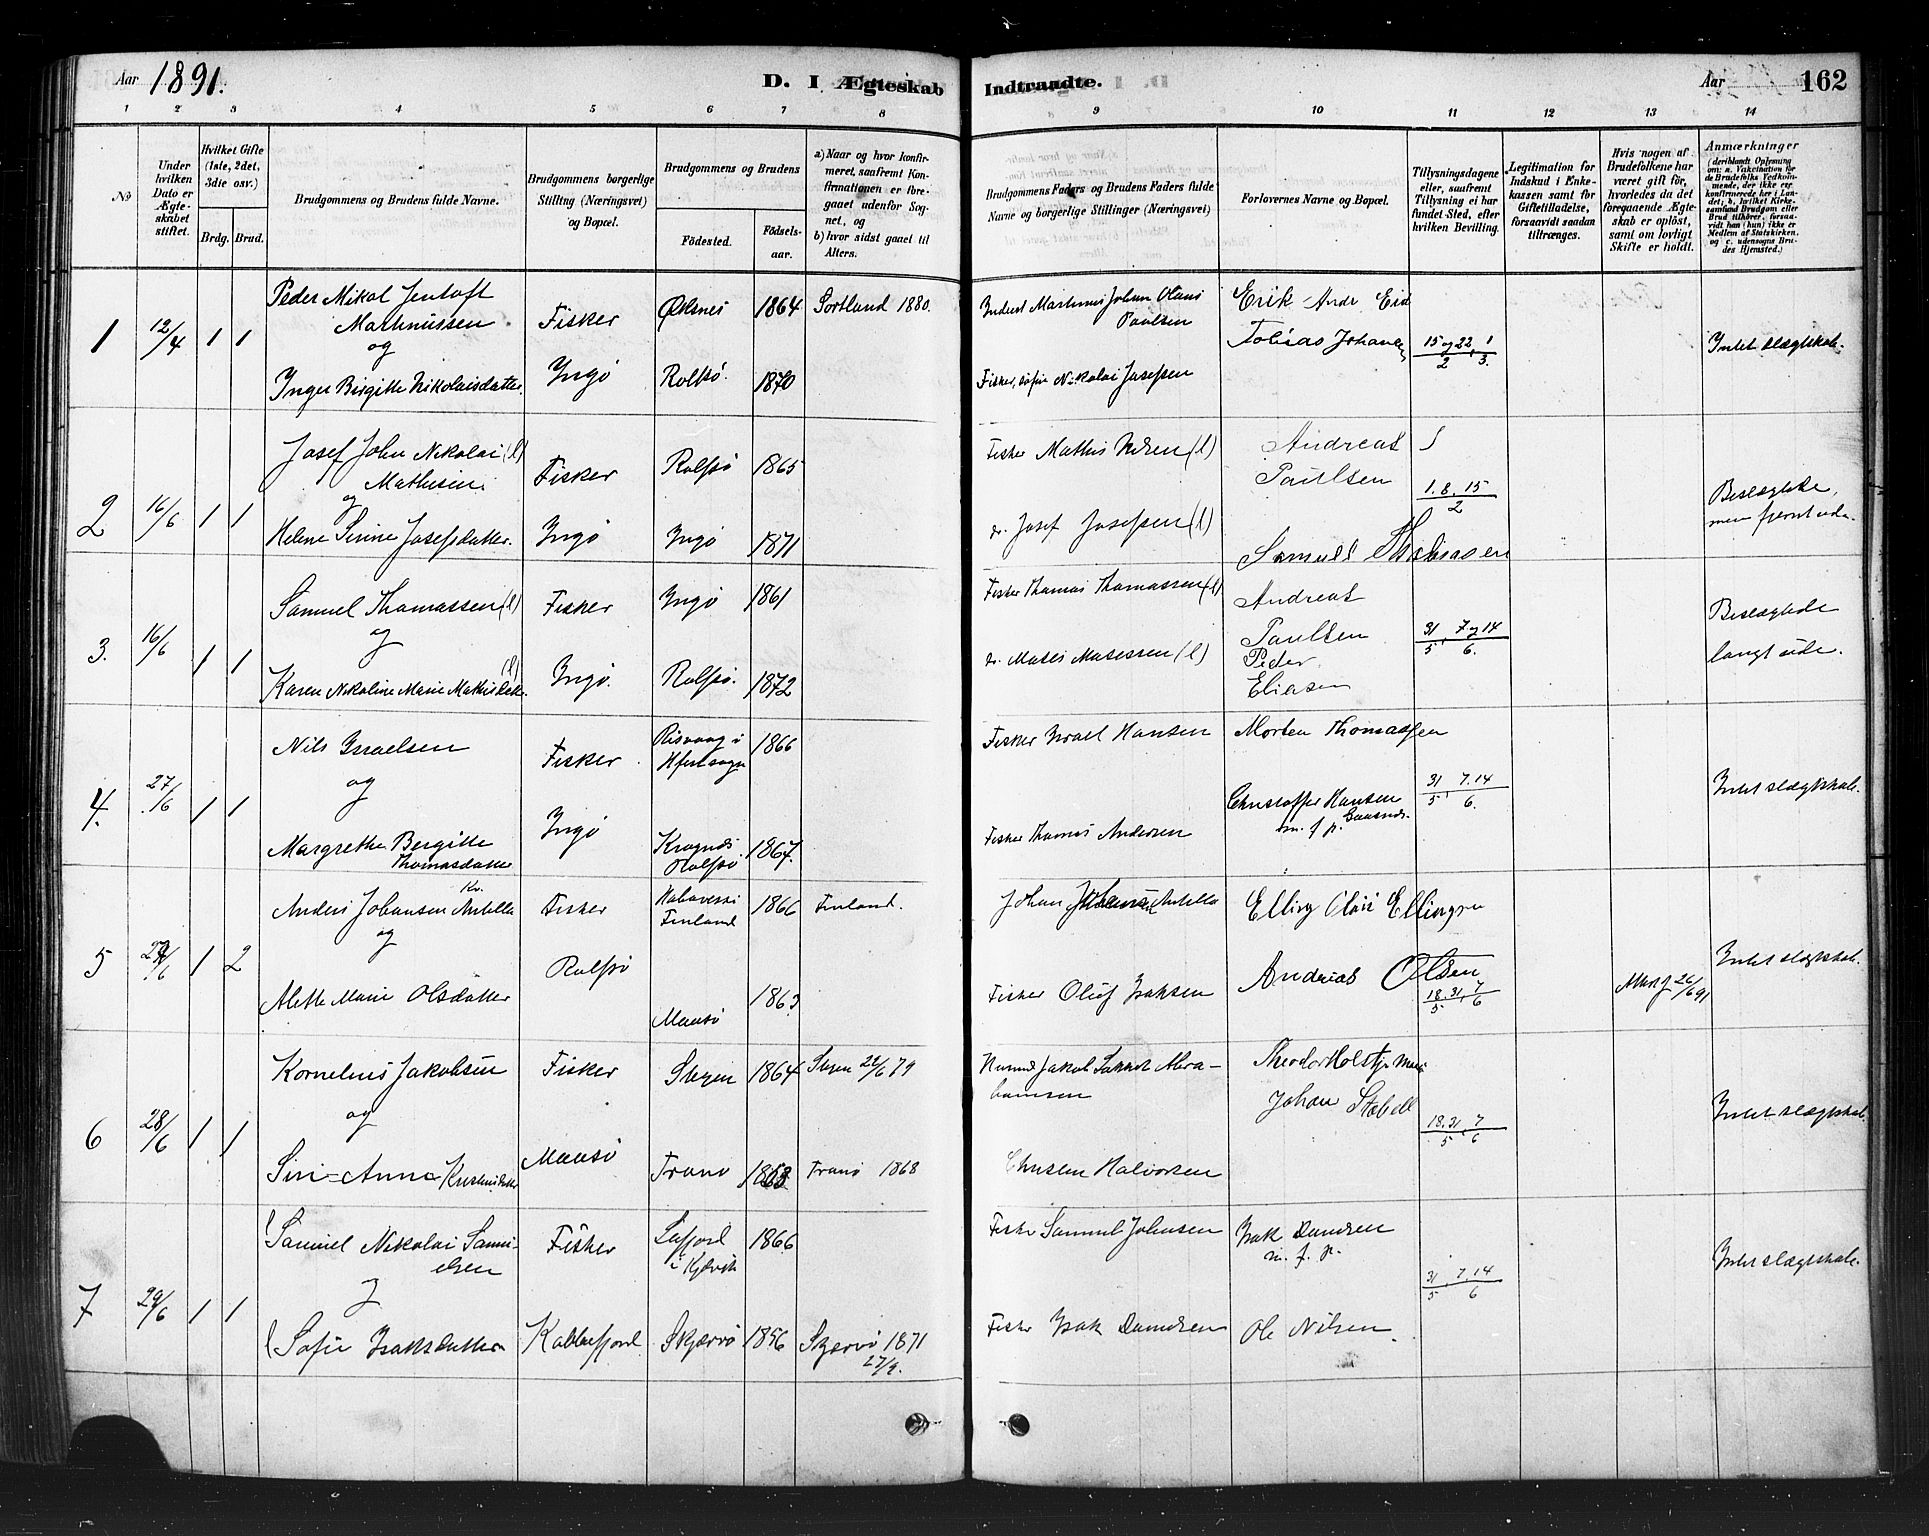 Aar 1891.
D. I Ægteskab Indtraadte.
Aar 162
1 2 3 4 5 6 7 8 9 10 11 12 13 14
No
Under hvilken Dato er Ægteskabet stiftet.
Hvilket Gifte (1ste, 2det, 3die osv.)
Brdg. Brud.
Brudgommens og Brudens fulde Navne.
Brudgommens borgerlige Stilling (Næringsvei) og Bopæl.
Brudgommens og Brudens
Fødested.
Fødselsaar.
a) Naar og hvor konfirmeret, saafremt Konfirmationen er foregaaet udenfor Sognet, og
b) hvor sidst gaaet til Alters.
Brudgommens Faders og Brudens Faders fulde Navne og borgerlige Stillinger (Næringsvei)
Forlovernes Navne og Bopæl.
Tillysningsdagene eller, saafremt Tillysning ei har fundet Sted, efter hvilken Bevilling.
Legitimation for Indskud i Enkekassen samt for Giftetilladelse, forsaavidt saadan tiltrænges.
Hvis nogen af Brudefolkene har været gift før, hvorledes da det foregaaende Ægteskab er opløst, samt om lovligt Skifte er holdt.
Anmærkninger
(deriblandt Oplysning om: a. Vakcination for de Brudefolks Vedkommende, der ikke ere konfirmerede her i Landet; b. hvilket Kirkesamfund Brudgom eller Brud tilhører, forsaavidt han (hun) ikke er Medlem af Statskirken, og c. udensogns Brudes Hjemsted.)
1 12/4 1 1
Peder Mikal Jentoft Martinussen
og
Inger Birgitte Nikolaisdatter.
Fisker
Ingø
Øksnes 1864 Sortland 1880.
Rolfsø. 1870
Inderst Martinus Johan Olaus Paulsen
Fisker, Nikolai Josefsen
Erik Andr Eid
Tobias Johansen
15 og 22 1
2 3.
Intet slægtskab.
2 16/6 1 1
Josef John Nikolai (l) Mathisen
og
Helene Sirine Josefsdatter.
Fisker
Ingø
Rolfsø 1865
Ingø 1871
Fisker Mathis (l)
do. Josef Josefsen (l)
Andreas Paulsen
Samuel
1. 8. 15
2
Beslægtede, men fjernt ude.
3. 16/6 1 1
Samuel Thomassen (l)
og
Karen Nikoline Marie Mathisdatt. (l)
Fisker
Ingø.
Ingø 1861
Rolfsø. 1872
Fisker Thomas Thomassen (l)
do. Matis Matessen (l)
Andreas Paulsen
Peder Eliasen
31 7 og 14
5 6.
Beslægtede langt ude.
4. 27/6 1 1
Nils Israelsen
og
Margrethe Bergitte Thomasdatter
Fisker
Ingø
Risvaag i Hfest sogn 1866
Rolfsø 1867.
Fisker Israel Hansen
Fisker Thomas Andersen
Morten Thomassen
Christoffer Hansen
m. f. p.
31 7. 14
5 6.
Intet slægtskab.
5 1 2
Anders Johansen Antella
og
Alette Marie Olsdatter
Fisker
Rolfsø
Finland 1866 Finland.
Maasø 1863
Johan Antella
Fisker Oluf Isaksen
Elling Olai Ellingsen
Andreas Olsen
18. 31. 7
5 6
26/6 91
Intet slægtskab.
6 28/6 1 1
Kornelius Jakobsen
og
Siri Anna
Fisker
Maasø
Stegen 1864 Stegen 22/6 79
Tranø Tranø 1868
Jakob Abrahamsen
Halvorsen
Theodor Holst
Johan Stabell
18. 31 7
5 6
Intet slægtskab.
7 29/6 1 1
Samuel Nikolai Samuelsen
og
Sofie Isaksdatter
Fisker
Kobbefjord
i Kjelvik 1866
Skjærvø 1856 Skjervø 1871
27/9.
Fisker Samuel Johnsen
Fisker Isak
Isak
m. f. p.
Ole Nilsen.
31 7. 14
5 6
Intet slægtskab.